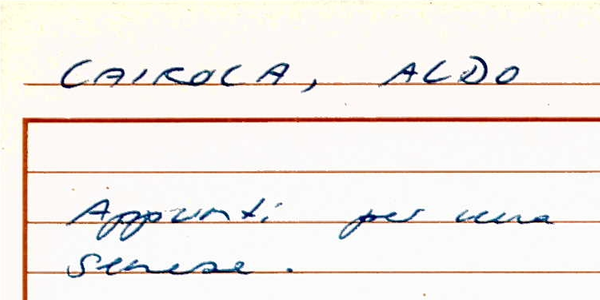 CAIROLA, ALDO
Appunti per una
senese.